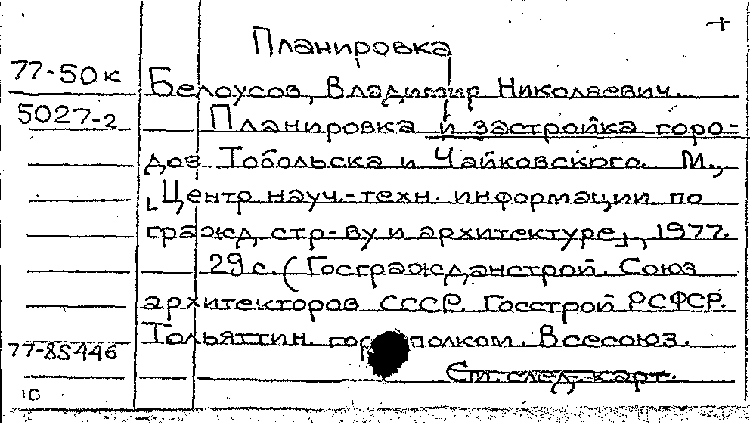 +
Планировка
77-50к Белоусов, Владимир Николаевич.
5027-2 Планировка и застройка горо-
дов Тобольска и Чайковского. М.,
[Центр науч.-техн. информации по
гражд. стр-ву и архитектуре], 1977.
29 с. (Госгражданстрой. Союз
архитекторов СССР. Госстрой РСФСР.
77-85446 Тольяттин. полком. Всесоюз.
См. след. карт.
10